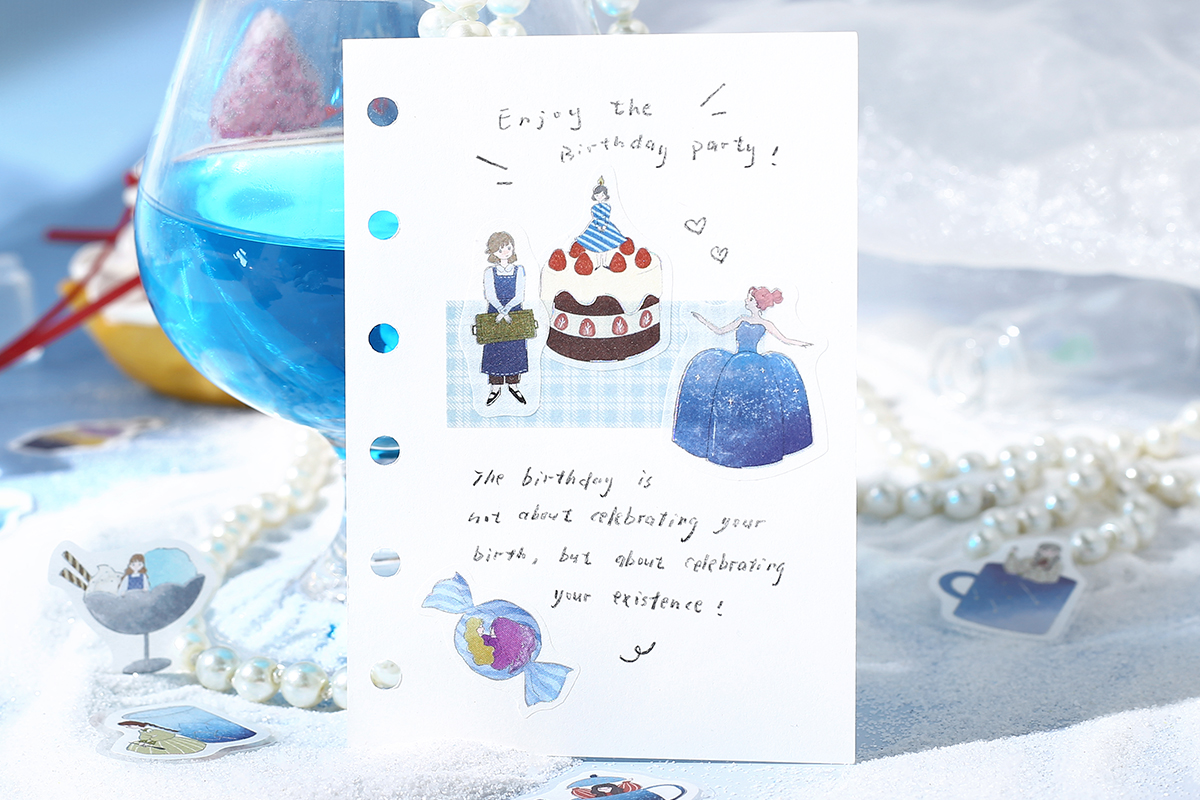 Enjoy the
Birthday party!
The birthday is
not about celebrating your
birth, but about celebrating
your existence!